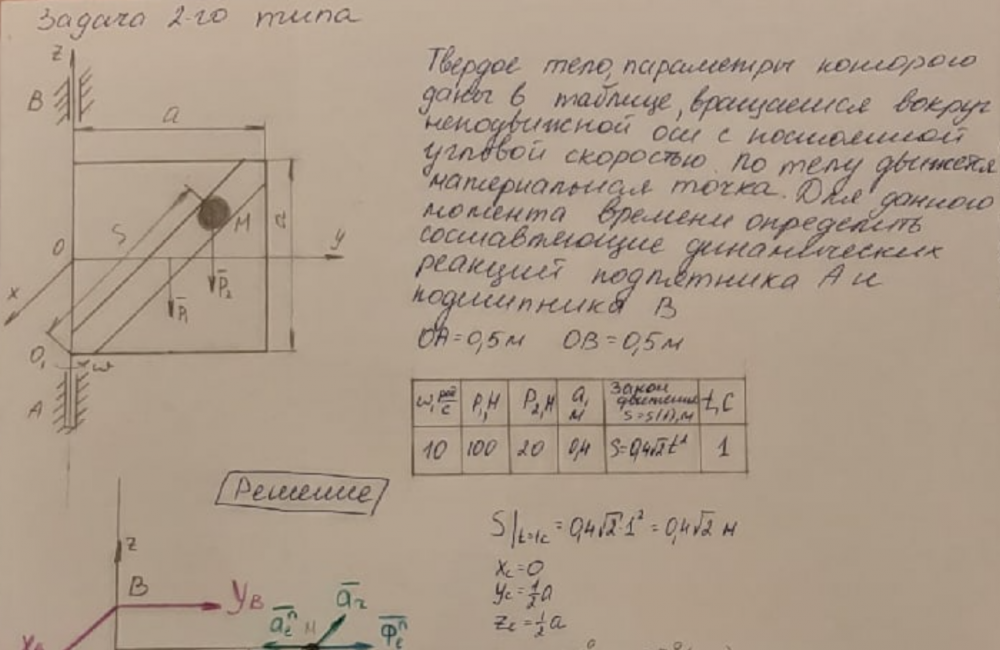 Задача 2-го типа
z
B
a
S
M
a
O
y
x
P̅₂
P̅₁
O₁
ω
A
Твердое тело, параметры которого
даны в таблице, вращается вокруг
неподвижной оси с постоянной
угловой скоростью. По телу движется
материальная точка. Для данного
момента времени определить
составляющие динамических
реакций подпятника A и
подшипника B
OA=0,5м OB=0,5м
ω, рад/с P₁, Н P₂, Н a, м Закон движения S=S(t), м t, C
10 100 20 0,4 S=0,4√2t² 1
Решение
S|t=1c = 0,4√2·1² = 0,4√2 м
xc=0
yc=½a
zc=½a
z
B
YB
a̅r
a̅eⁿ
M
Φ̅eⁿ
XB